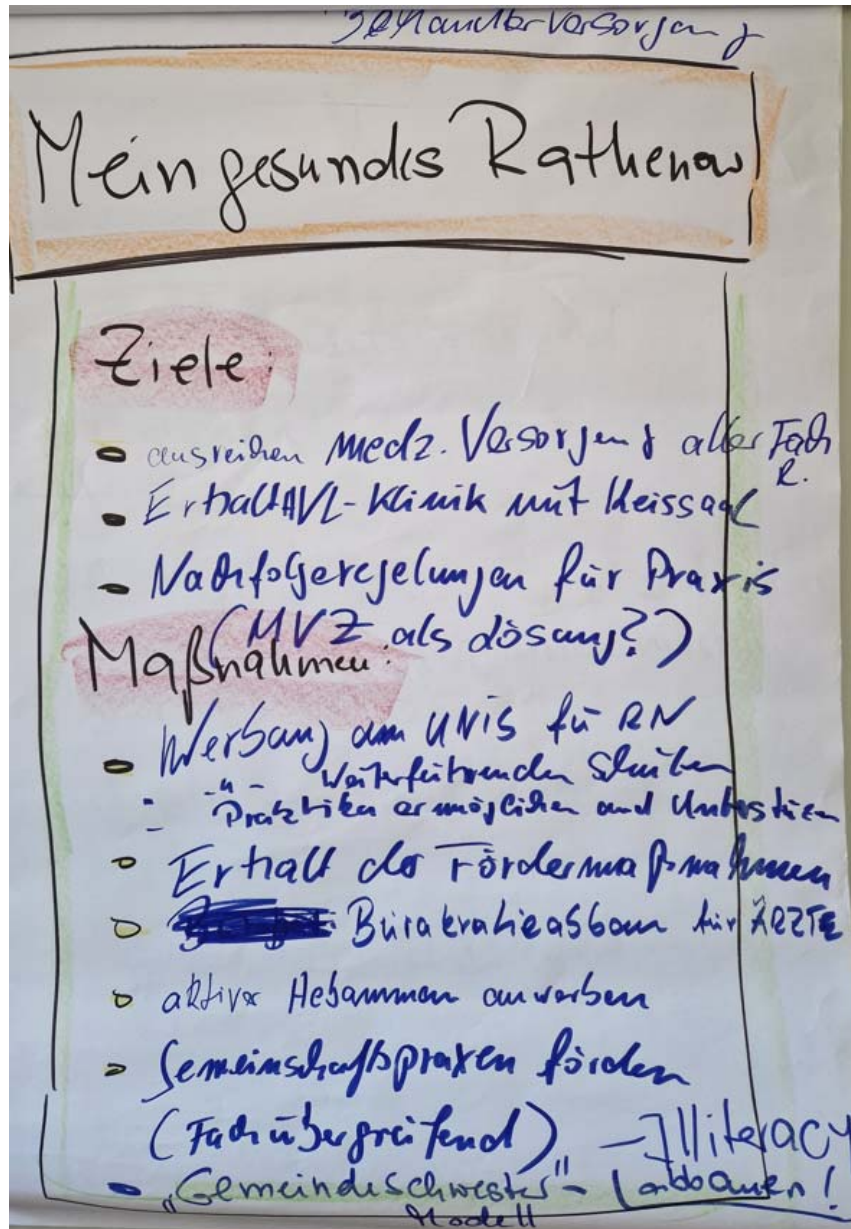 Behandlerversorgung
Mein gesundes Rathenow
Ziele:
ausreihen medz. Versorgung aller Fach
R.
Erhalt AVL-Klinik mit Kreissaal
Nachfolgeregelungen für Praxis
(MVZ als Lösung?)
Maßnahmen:
Werbung an UNIS für RN
-"- Weiterführenden Schulen
- Praktika ermöglichen und Unterstützen
Erhalt der Fördermaßnahmen
Bürokratieabbau für ÄRZTE
aktive Hebammen anwerben
Gemeinschaftspraxen fördern
(Fachübergreifend)
- Illiteracy
"Gemeindeschwester" - (abbauen!
Modell